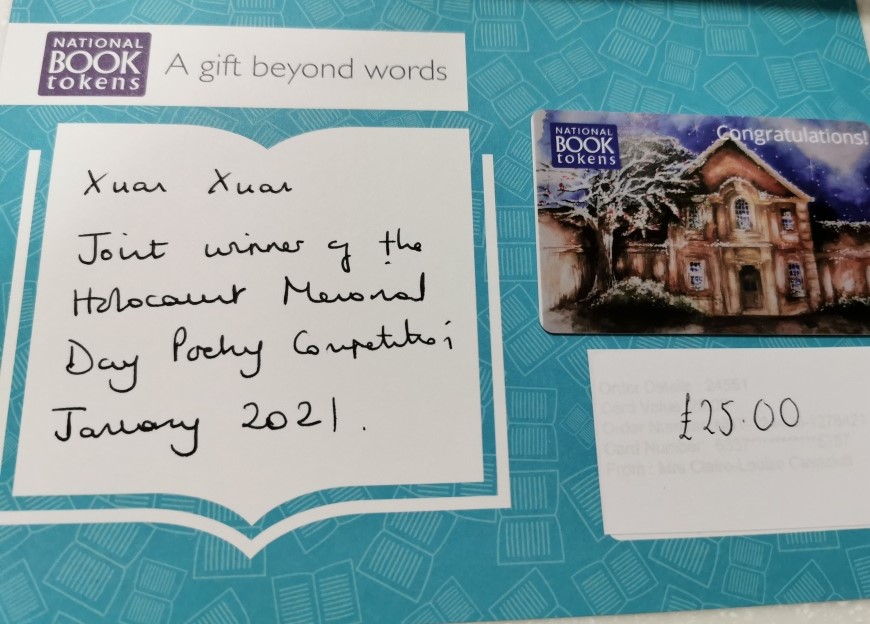 NATIONAL
BOOK
tokens
A gift beyond words
Xuan Xuan
Joint winner of the
Holocaust Memorial
Day Poetry Competition
January 2021.
NATIONAL
BOOK
tokens
Congratulations!
£25.00
Order Details : 24581
Card Value
Order
Card Number
From : Mrs Claire-Louise